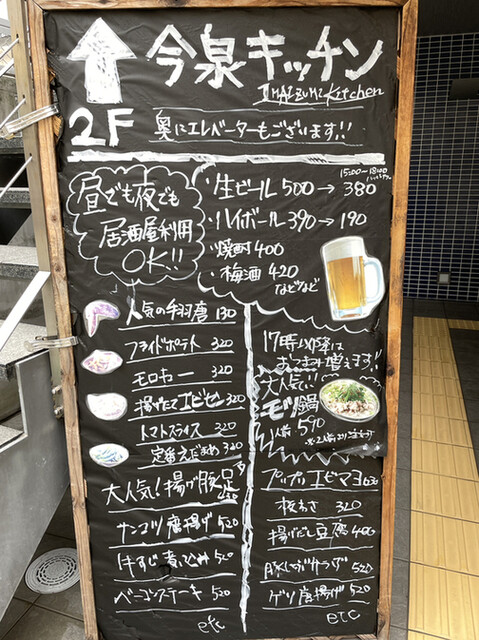 今泉キッチン
IMAIZUMI Kitchen
2F 奥にエレベーターもございます!!
昼でも夜でも
居酒屋利用
OK!!
15:00〜18:00
・生ビール 500→380
・ハイボール 390→190
・焼酎 400
・梅酒 420
などなど
人気の手羽唐 130
フライドポテト 320
モロキュー 320
揚げたてエビセン 320
トマトスライス 320
定番えだまめ 320
大人気!揚げ豚足
サンコツ唐揚げ 520
牛すじ煮こみ 520
ベーコンステーキ 520
etc
17時以降は
おつまみ増えます!!
大人気!!
モツ鍋
1人前 590
※2人前より
プリプリエビマヨ 630
板わさ 320
揚げだし豆腐 400
豚しゃぶサラダ 520
ゲソ唐揚げ 520
etc